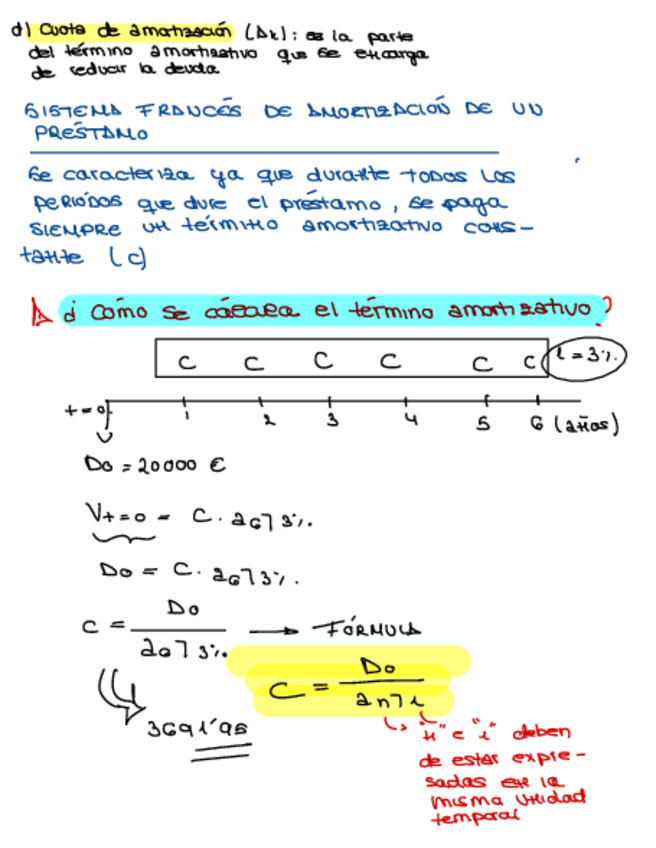 d) Cuota de amortización (Ak): es la parte
del término amortizativo que se encarga
de reducir la deuda
SISTEMA FRANCÉS DE AMORTIZACIÓN DE UN
PRÉSTAMO
Se caracteriza ya que durante TODOS LOS
PERIODOS que dure el préstamo, se paga
SIEMPRE un término amortizativo cons-
tante (c)
¿Cómo se cálcula el término amortizativo?
C C C C C C i=3%
t=0 1 2 3 4 5 6 (años)
Do = 20000 €
Vt=0 = C. a6┐3%.
Do = C. a6┐3%.
C = Do / a6┐3%. → FÓRMULA
C = Do / an┐i
3691'95
"n" e "i" deben
de estar expre-
sadas en la
misma unidad
temporal